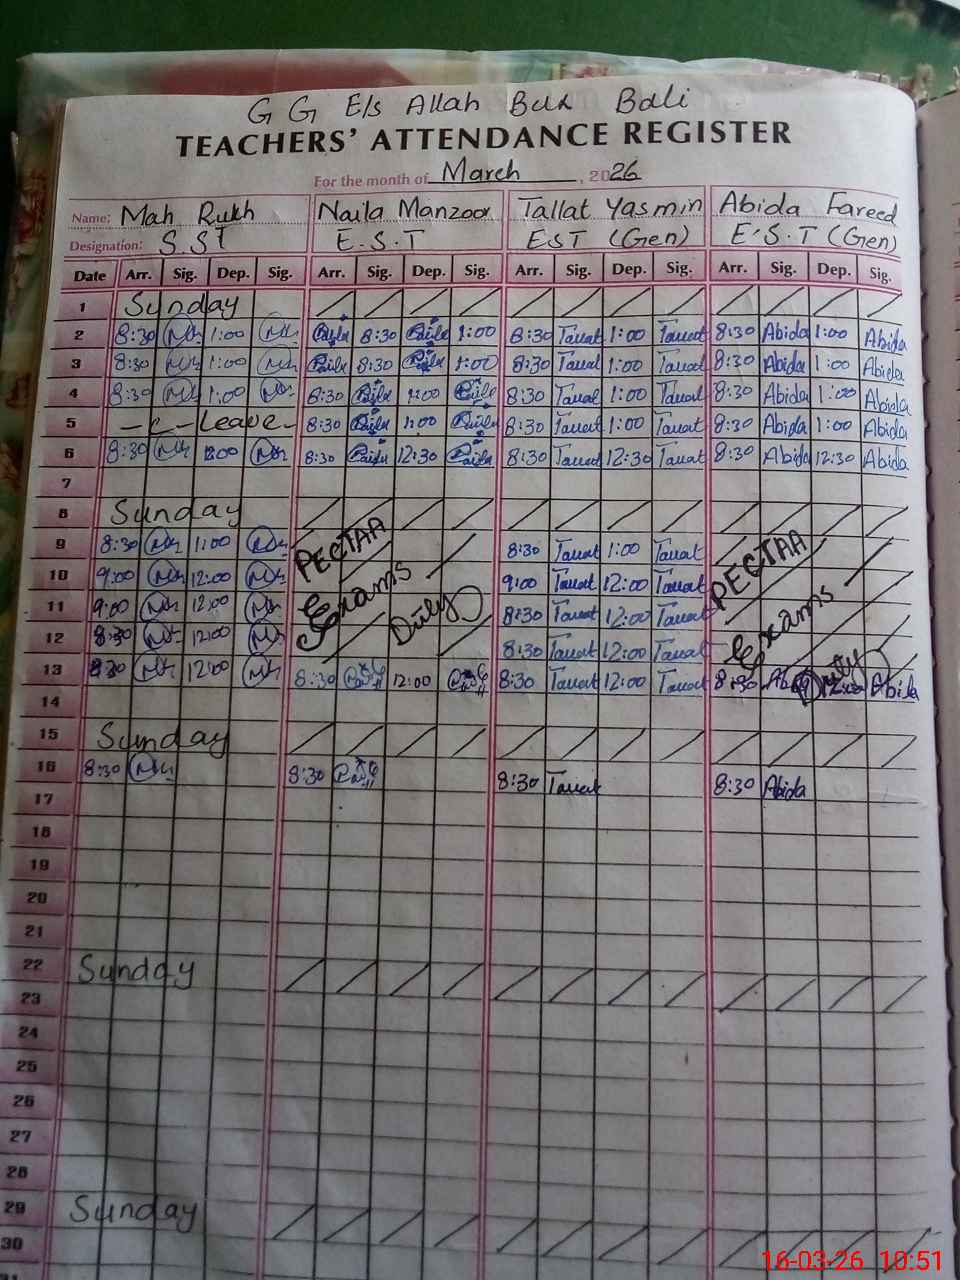 G G E/s Allah Bux Bali
TEACHERS' ATTENDANCE REGISTER
For the month of March , 2026
Name: Mah Rukh Naila Manzoor Tallat Yasmin Abida Fareed
Designation: S.ST E.S.T EST (Gen) E.S.T (Gen)
Date Arr. Sig. Dep. Sig. Arr. Sig. Dep. Sig. Arr. Sig. Dep. Sig. Arr. Sig. Dep. Sig.
1 Sunday
2 8:30 1:00 8:30 1:00 8:30 Tallat 1:00 Tallat 8:30 Abida 1:00 Abida
3 8:30 1:00 8:30 1:00 8:30 Tallat 1:00 Tallat 8:30 Abida 1:00 Abida
4 8:30 1:00 8:30 1:00 8:30 Tallat 1:00 Tallat 8:30 Abida 1:00 Abida
5 Leave 8:30 1:00 8:30 Tallat 1:00 Tallat 8:30 Abida 1:00 Abida
6 8:30 8:30 12:30 8:30 Tallat 12:30 Tallat 8:30 Abida 12:30 Abida
7
8 Sunday
9 8:30 1:00 PECTAA 8:30 Tallat 1:00 Tallat PECTAA
10 9:00 12:00 Exams 9:00 Tallat 12:00 Tallat
11 9:00 12:00 Duty 8:30 Tallat 12:00 Tallat Exams
12 8:30 12:00 8:30 Tallat 12:00 Tallat Duty
13 8:30 12:00 8:30 12:00 8:30 Tallat 12:00 Tallat 8:30 12:00 Abida
14
15 Sunday
16 8:30 8:30 8:30 Tallat 8:30 Abida
17
18
19
20
21
22 Sunday
23
24
25
26
27
28
29 Sunday
30
31
16-03-26 10:51